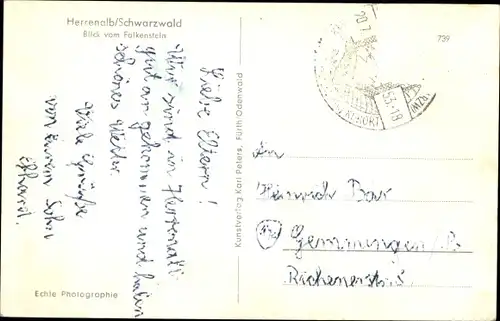 Herrenalb/Schwarzwald
Blick vom Falkenstein
Liebe Eltern!
Wir sind in Herrenalb
gut angekommen und haben
schönes Wetter
Viele Grüße
von Eurem Sohn
Echte Photographie
Kunstverlag Karl Peters, Fürth Odenwald
739
20.7.
53-18
An
Heinrich
Gemmingen
Richenerstr.